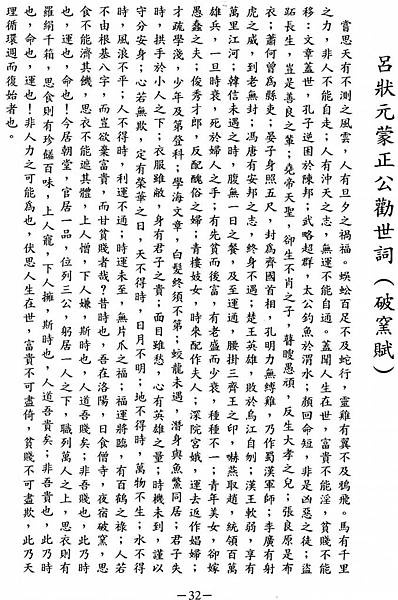 呂狀元蒙正公勸世詞(破窯賦)
嘗思天有不測之風雲,人有旦夕之禍福。蜈蚣百足不及蛇行,靈雞有翼不及鴉飛。馬有千里
之力,非人不能自走;人有沖天之志,無運不能自通。蓋聞人生在世,富貴不能淫,貧賤不能
移;文章蓋世,孔子逆困於陳邦;武略超群,太公釣魚於渭水;顏回命短,非是凶惡之徒;盜
跖長生,豈是善良之輩;堯帝天聖,卻生不肖之子,瞽瞍愚頑,反生大孝之兒;張良原是布
衣;蕭何曾為縣吏;晏子身照五尺,封為齊國首相,孔明力無縛雞,乃作蜀漢軍師;李廣有射
虎之威,到老無封;馮唐有安邦之志,終身不遇;楚王英雄,敗於烏江自刎;漢王軟弱,享有
萬里江河;韓信未遇之時,腹無一日之餐,及至運通,腰掛三齊王之印,嚇燕取趙,統領百萬
雄兵,一旦時衰,死於婦人之手;有先貧而後富,有老盛而少衰,種種不一;青年美女,卻嫁
愚蠢之夫;俊秀才郎,反配醜俗之婦;青樓妓女,時來配作夫人;深院宮娥,運去返作娼婦;
才疏學淺,少年及第登科;學海文章,白髮終須不第;蛟龍未遇,潛身與魚鱉同居;君子失
時,拱手於小人之下;衣服雖敝,身有君子之貴;面目雖愁,心有英雄之量;時機未到,謹以
守分安身;心若無欺,定有榮華之日,天不得時,日月不明;地不得時,萬物不生;水不得
時,風浪不平;人不得時,利運不通;時運未至,無片爪之福;福運將臨,有百鶴之祿;人若
不由根基八字,而豈欲棄富貴,而甘貧賤者哉?昔時也,吾在洛陽,日食僧寺,夜宿破窯,思
食不能濟其機,思衣不能遮其體,上人僧,下人嫌,斯時也,人道吾賤矣;非吾賤也,此乃時
也,運也,命也!今居朝堂,官居一品,位列三公,躬居一人之下,職列萬人之上,思衣則有
羅絹千箱,思食則有珍饈百味,上人寵,下人擁,斯時也,人道吾貴矣;非吾貴也,此乃時
也,命也,運也!非人力之可能為也,伏思人生在世,富貴不可盡倚,貧賤不可盡欺,此乃天
理循環週而復始者也。
—32—